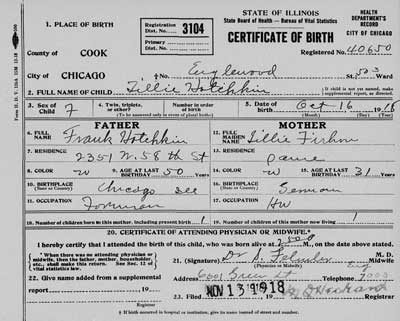 STATE OF ILLINOIS
State Board of Health — Bureau of Vital Statistics
CERTIFICATE OF BIRTH
HEALTH DEPARTMENT'S RECORD
CITY OF CHICAGO
1. PLACE OF BIRTH
Registration Dist. No. 3104
Primary Dist. No.
Registered No. 40650
County of COOK
City of CHICAGO
†No. Englewood St. Ward
2. FULL NAME OF CHILD Tillie Hotchkin
If child is not yet named, make supplemental report, as directed.
3. Sex of Child F
4. Twin, triplets, or other?
Number in order of birth
(To be answered only in event of plural births)
5. Date of birth Oct 16 1918
(Month) (Day) (Year)
FATHER
MOTHER
6. FULL NAME Frank Hotchkin
12. FULL MAIDEN NAME Lillie
7. RESIDENCE 2351 W. 58th St
13. RESIDENCE same
8. COLOR W
9. AGE AT LAST BIRTHDAY 50 Years
14. COLOR W
15. AGE AT LAST BIRTHDAY 31 Years
10. BIRTHPLACE (State or Country) Chicago
16. BIRTHPLACE (State or Country)
11. OCCUPATION
17. OCCUPATION HW
18. Number of children born to this mother, including present birth 1
19. Number of children of this mother now living 1
20. CERTIFICATE OF ATTENDING PHYSICIAN OR MIDWIFE.*
I hereby certify that I attended the birth of this child, who was born alive at M., on the date above stated.
* When there was no attending physician or midwife, then the father, mother, householder, etc., shall make this return. See Sec. 12 of vital statistics law.
21. (Signature) Dr M. D.
(Physician or Midwife) Midwife
22. Give name added from a supplemental report 19
Address Green St Telephone
23. Filed NOV 13 1918
Registrar
Registrar
† If birth occurred in hospital or institution, give its name instead of street and number.